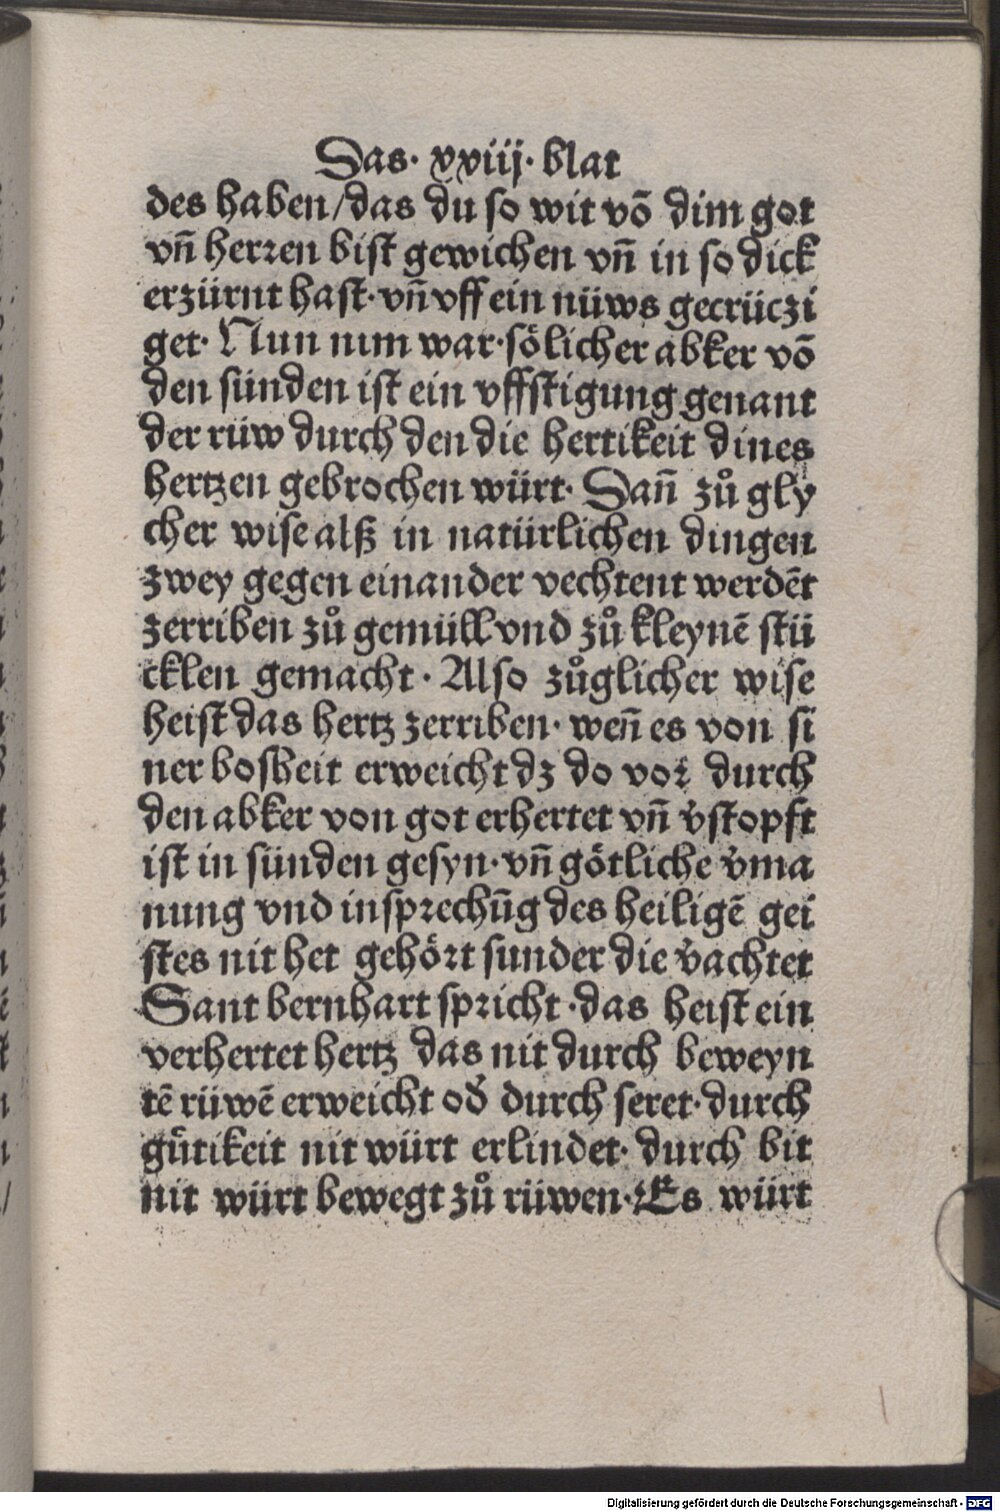 Das· xxiij· blat
des haben/das du so wit võ dim got
vñ herren bist gewichen vñ in so dick
erzürnt hast· vñ vff ein nüws gecrüczi
get· Nun nim war·sölicher abker võ
den sünden ist ein vffstigung genant
der rüw durch den die hertikeit dines
hertzen gebrochen würt· Dañ zů gly
cher wise alß in natürlichen dingen
zwey gegen einander vechtent werdẽt
zerriben zů gemüll vnd zů kleynẽ stü
cklen gemacht · Also zůglicher wise
heist das hertz zerriben· weñ es von si
ner bosheit erweicht dz do vor durch
den abker von got erhertet vñ v̓stopft
ist in sünden gesyn·vñ götliche v̓ma
nung vnd insprechũg des heiligẽ gei
stes nit het gehört sunder die v̓achtet
Sant bernhart spricht ·das heist ein
verhertet hertz das nit durch beweyn
tẽ rüwẽ erweicht od̓ durch seret·durch
gütikeit nit würt erlindet· durch bit
nit würt bewegt zů rüwen·Es würt
Digitalisierung gefördert durch die Deutsche Forschungsgemeinschaft - DFG